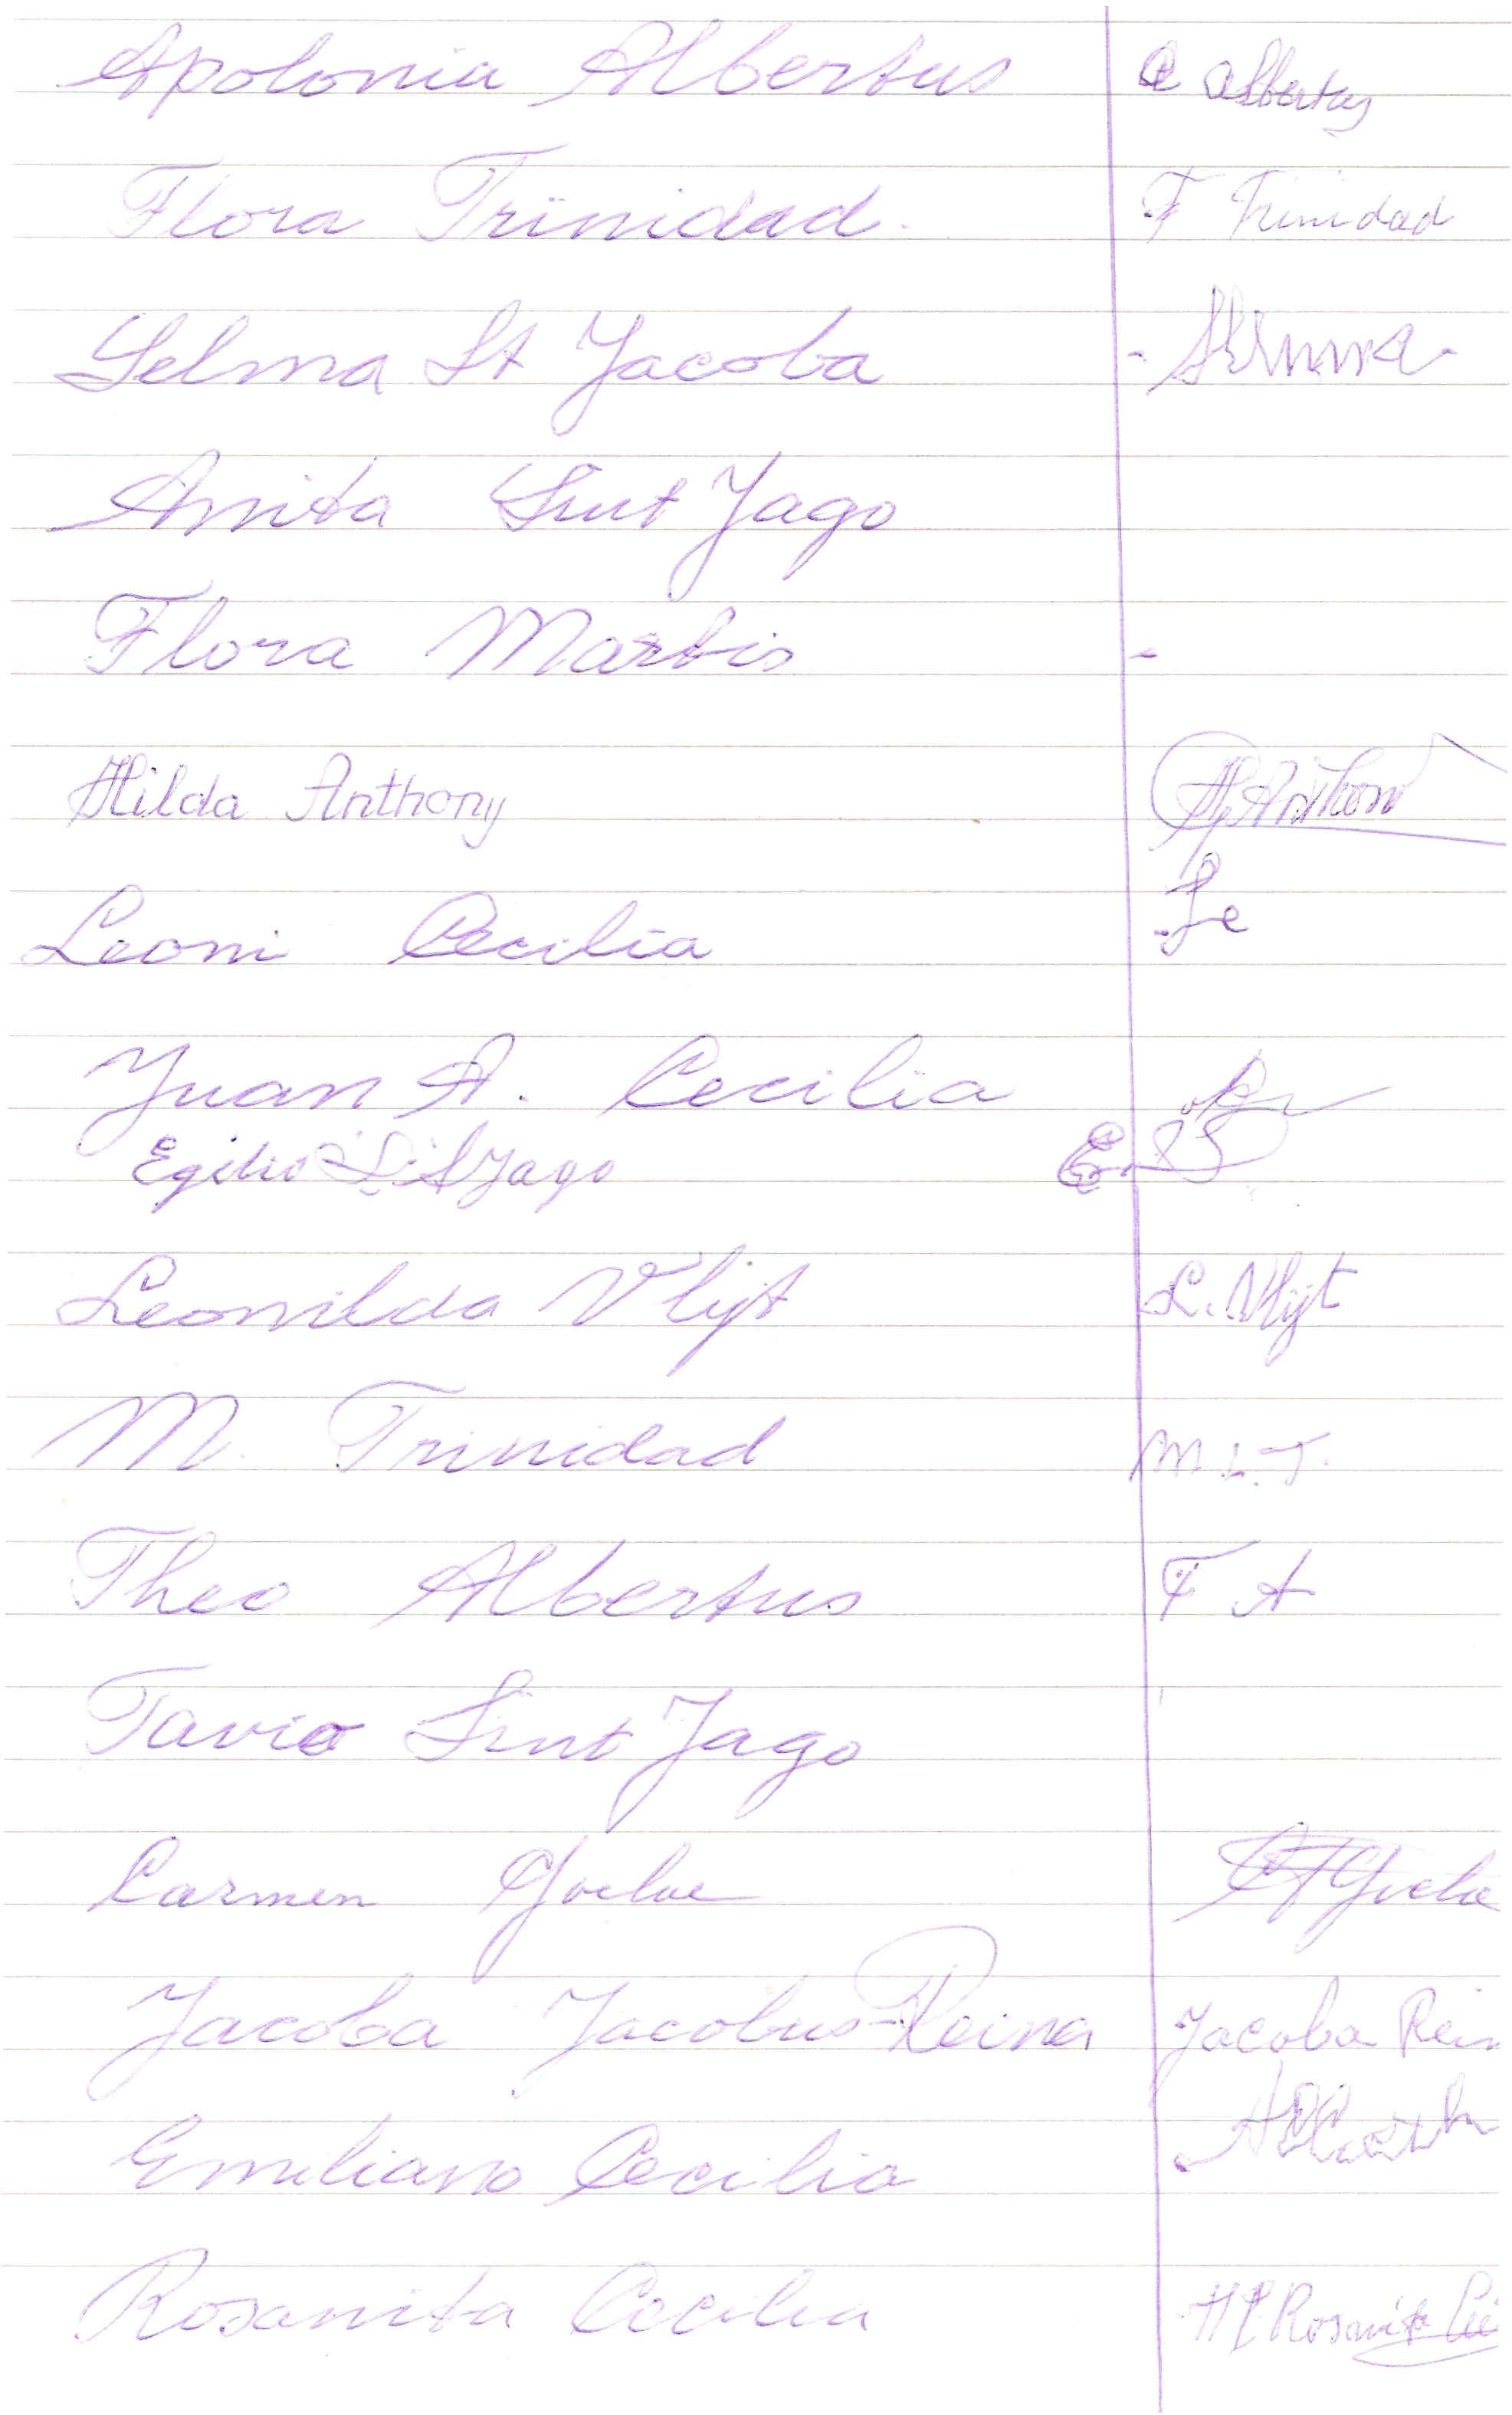 Apolonia Albertus A Albertus
Flora Trinidad. F Trinidad
Selma St Jacoba
Anita Sint Jago
Flora Martis -
Hilda Anthony
Leoni Cecilia Le
Juan A. Cecilia
Egilio St Jago E
Leonilda Vlijt L. Vlijt
M. Trinidad M. L. T.
Theo Albertus T A
Tavio Sint Jago
Carmen Goeloe
Jacoba Jacobus-Reina Jacoba Rein
Emiliano Cecilia
Rosanita Cecilia Rosanita